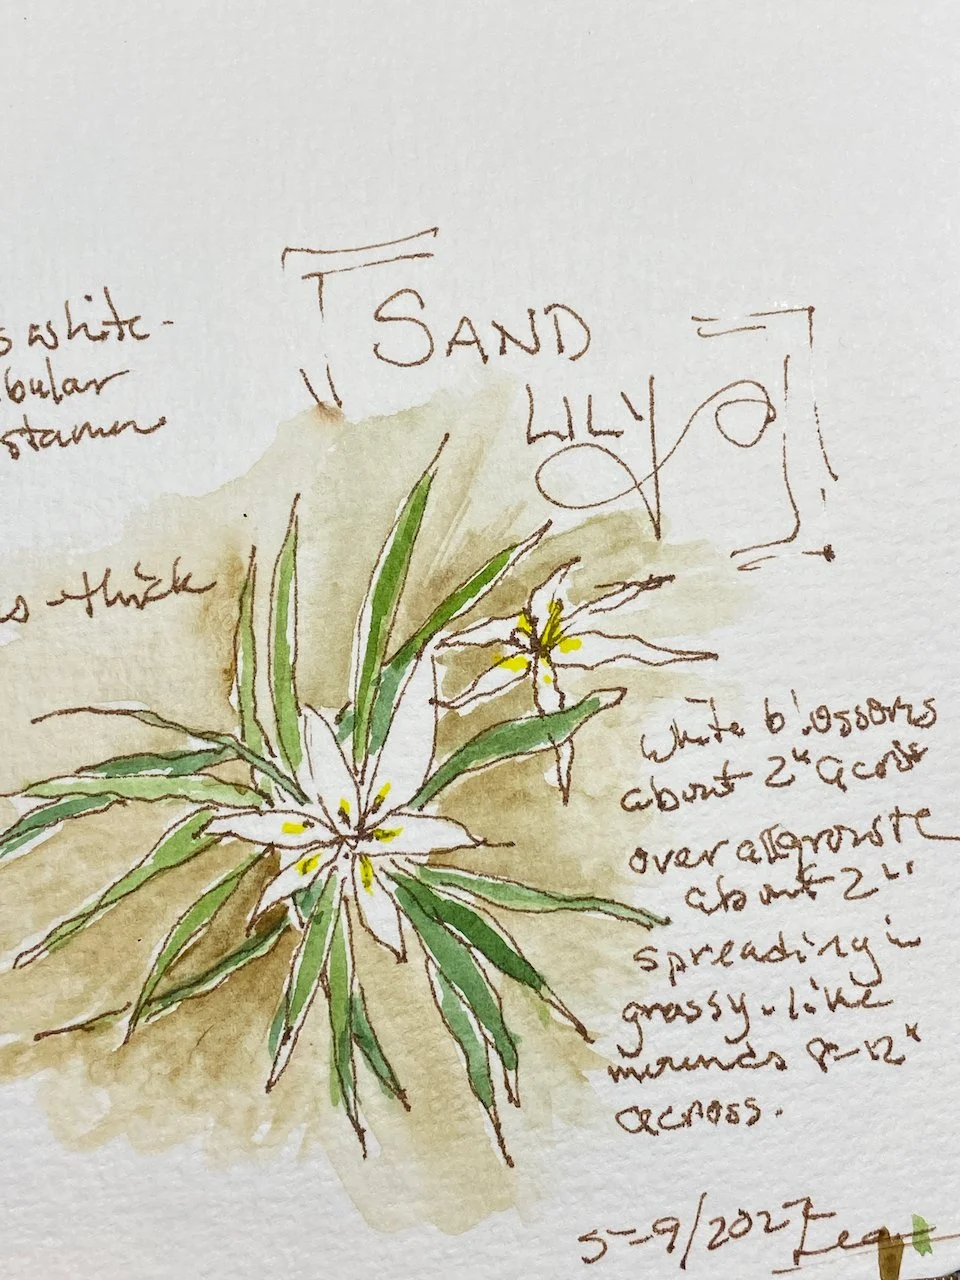 SAND
LILY
white
bular
stamen
thick
white blossoms
about 2" across
over all growth
about 2"
spreading in
grassy-like
mounds 8-12"
across.